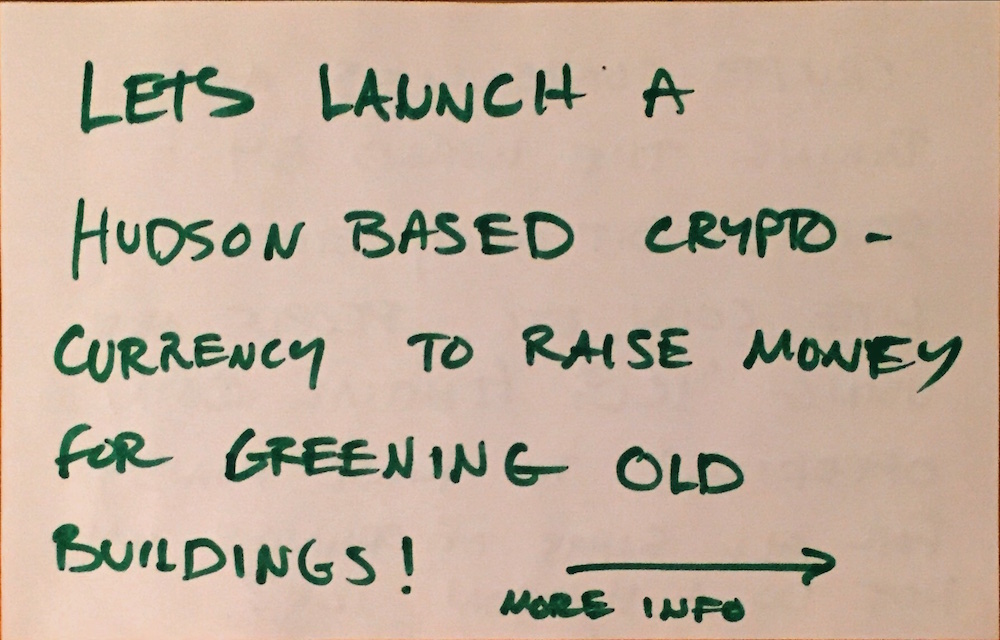 LETS LAUNCH A
HUDSON BASED CRYPTO-
CURRENCY TO RAISE MONEY
FOR GREENING OLD
BUILDINGS!
MORE INFO